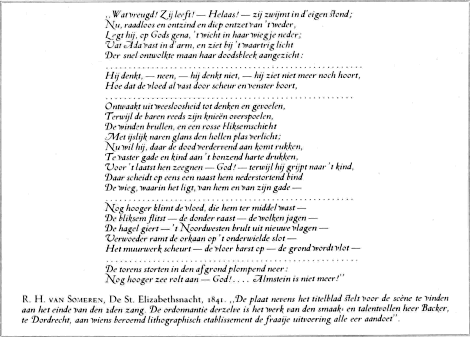 „Wat vreugd! Zij leeft! — Helaas! — zij zwijmt in d'eigen stond;
Nu, raadloos en ontzind en diep ontzet van 't weder,
Legt hij, op Gods gena, 't wicht in haar wiegje neder;
Vat Ada vast in d'arm, en ziet bij 't waartrig licht
Der snel ontwolkte maan haar doodsbleek aangezicht:
Hij denkt, — neen, — hij denkt niet, — hij ziet niet meer noch hoort,
Hoe dat de vloed al vast door scheur en venster boort,
Ontwaakt uit weesloosheid tot denken en gevoelen,
Terwijl de baren reeds zijn knieën overspoelen,
De winden brullen, en een rosse bliksemschicht
Met ijslijk naren glans den hollen plas verlicht;
Nu wil hij, daar de dood verderend aan komt rukken,
Te vaster gade en kind aan 't bonzend harte drukken,
Voor 't laatst hen zeegnen — God! — terwijl hij grijpt naar 't kind,
Daar scheidt op eens een naast hem nederstortend bind
De wieg, waarin het ligt, van hem en van zijn gade —
Nog hooger klimt de vloed, die hem ter middel wast —
De bliksem flitst — de donder raast — de wolken jagen —
De hagel giert — 't Noordwesten brult uit nieuwe vlagen —
Verwoeder ramt de orkaan op 't onderwielde slot —
Het muurwerk scheurt — de vloer barst op — de grond wordt vlot —
De torens storten in den afgrond plompend neer:
Nog hooger zee rolt aan — God! .... Almstein is niet meer!"
R. H. VAN SOMEREN, De St. Elizabethsnacht, 1841. „De plaat nevens het titelblad stelt voor de scène te vinden
aan het einde van den 2den zang. De ordonnantie derzelve is het werk van den smaak- en talentvollen heer Backer,
te Dordrecht, aan wiens beroemd lithographisch etablissement de fraaije uitvoering alle eer aandoet".